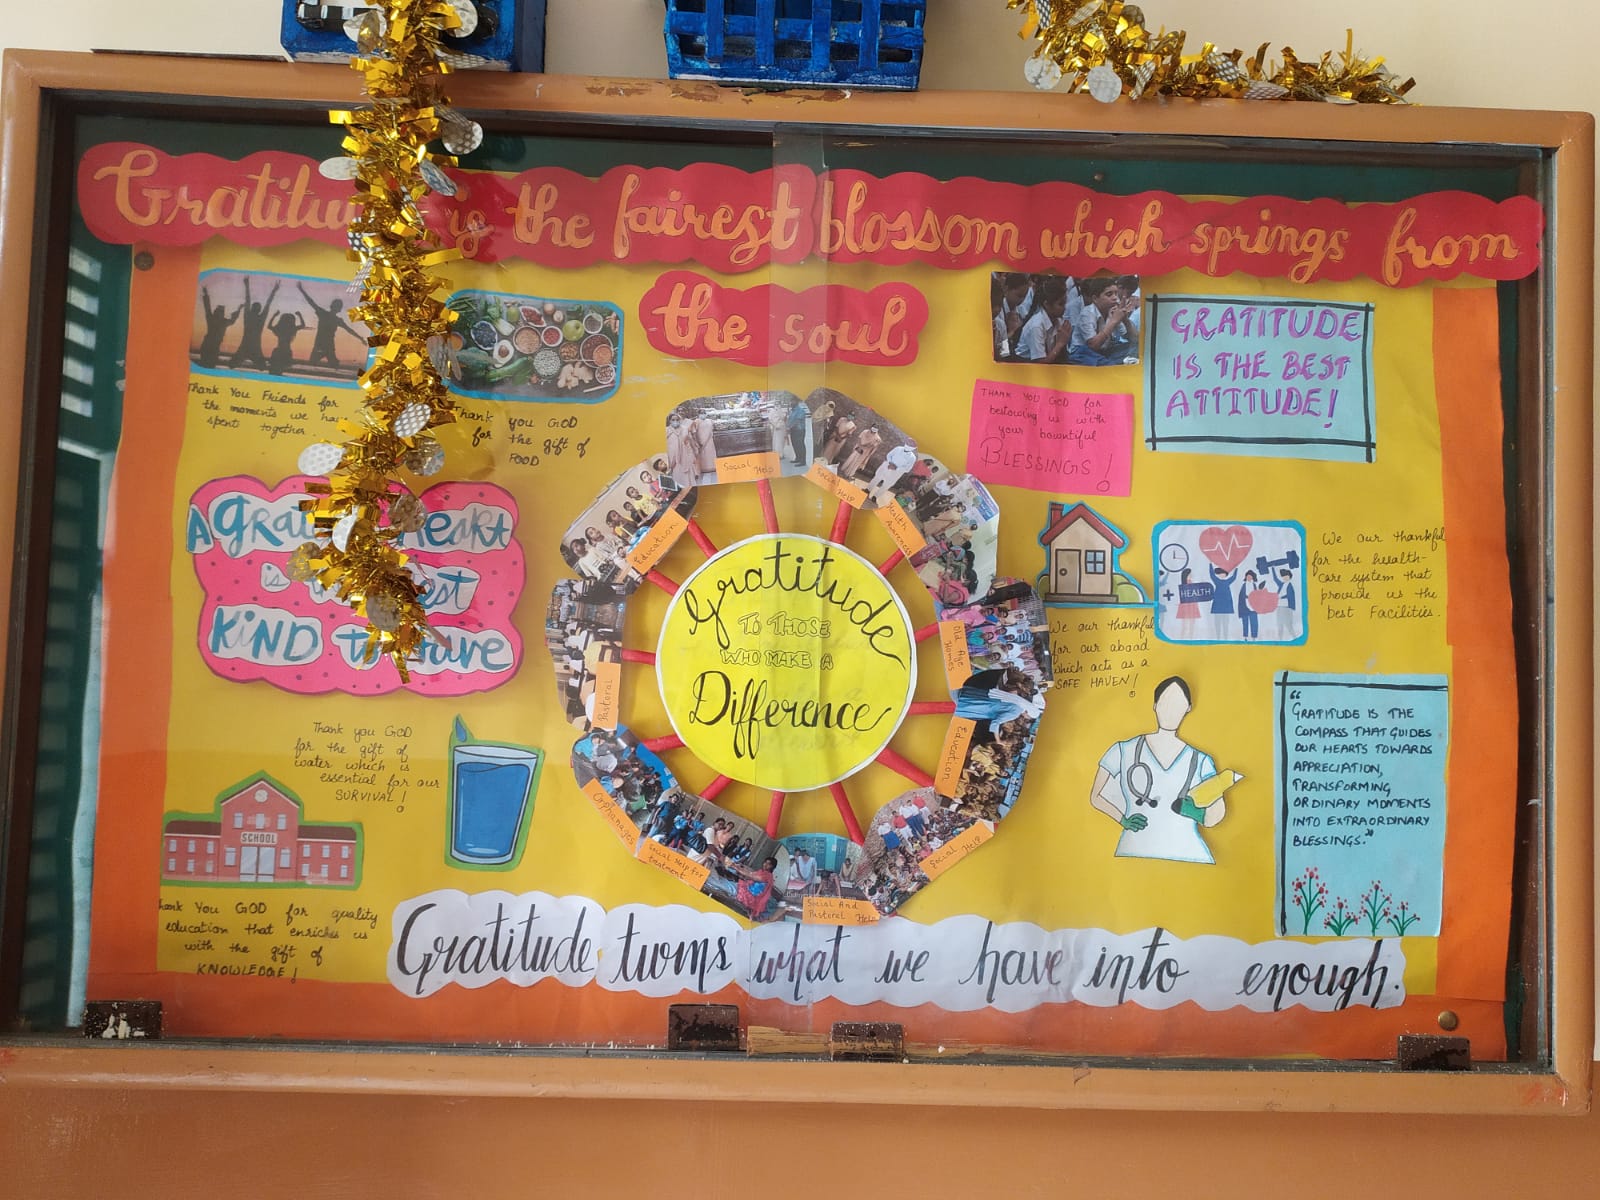 Gratitu is the fairest blossom which springs from
the soul
Thank You Friends for
the moments we ha
spent together.
Thank you GOD
for the gift of
FOOD
THANK YOU GOD for
bestowing us with
your bountiful
BLESSINGS!
GRATITUDE
IS THE BEST
ATTITUDE!
A grat heart
is est
KIND to
Social Help
Social Help
Health
Awareness
Old Age
Homes
Education
Social Help
Social And
Pastoral Help
Social Help for
treatment
Orphanages
Pastoral
Education
Gratitude
TO THOSE
WHO MAKE A
Difference
We our thankful
for our abood
which acts as a
SAFE HAVEN!
HEALTH
We our thankful
for the health-
care system that
provide us the
best Facilities.
Thank you GOD
for the gift of
water which is
essential for our
SURVIVAL!
SCHOOL
Thank You GOD for quality
education that enriches us
with the gift of
KNOWLEDGE!
"GRATITUDE IS THE
COMPASS THAT GUIDES
OUR HEARTS TOWARDS
APPRECIATION,
TRANSFORMING
ORDINARY MOMENTS
INTO EXTRAORDINARY
BLESSINGS."
Gratitude turns what we have into enough.